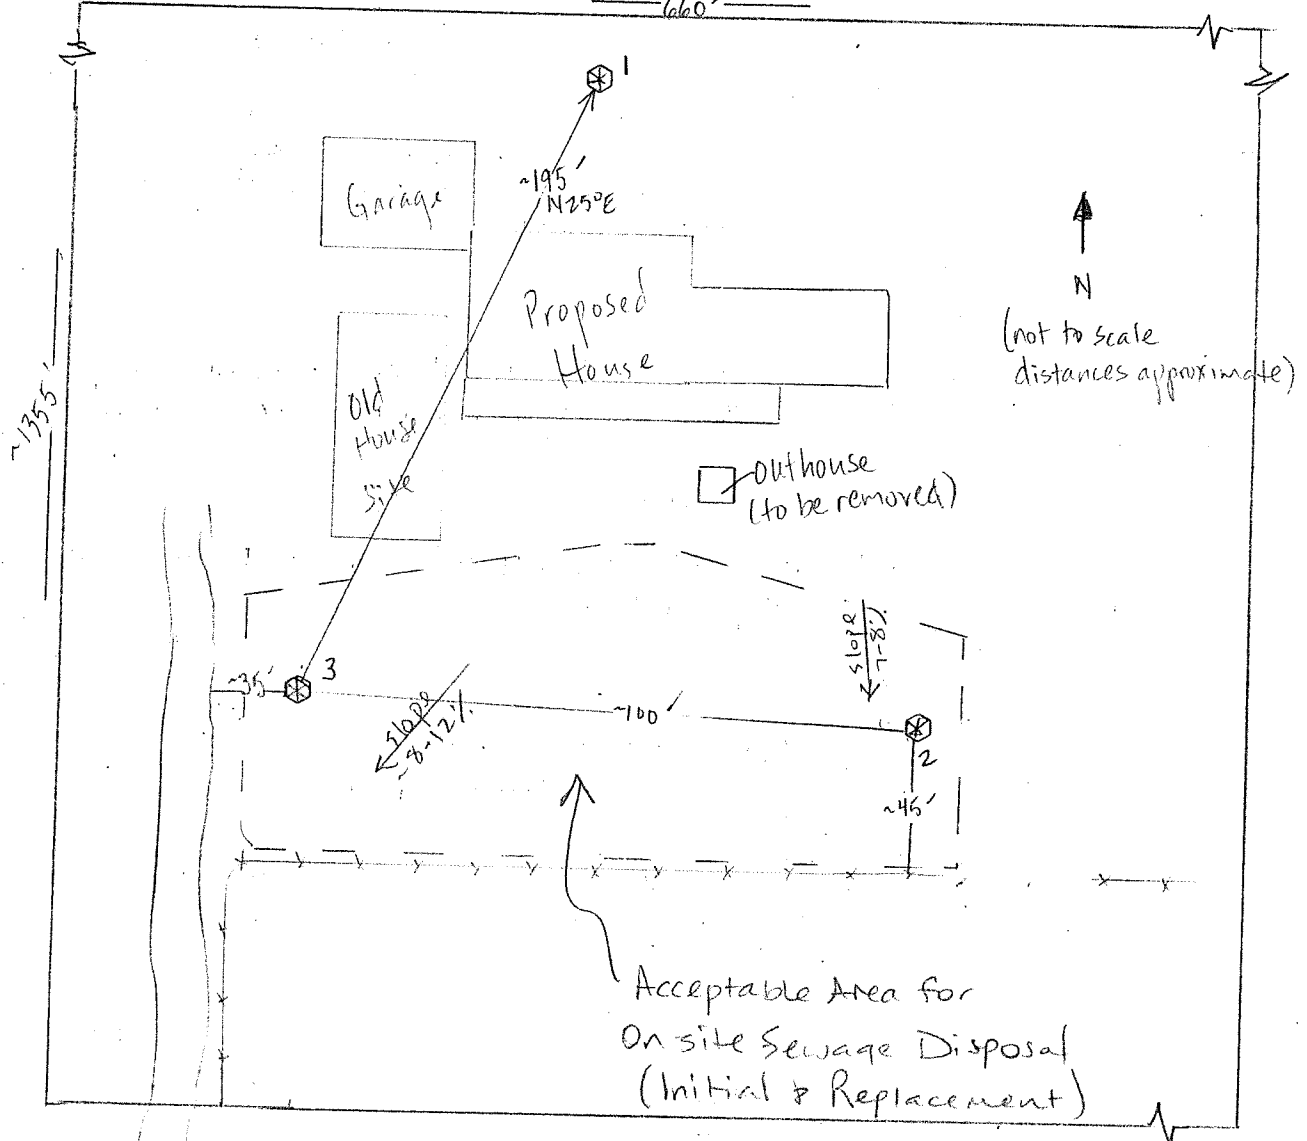 660'
1
Garage
~195'
N25°E
N
(not to scale
distances approximate)
Proposed
House
~1355'
Old
House
Site
outhouse
(to be removed)
slope
7-8%
~35'
3
slope
~8-12%
~100'
2
~45'
Acceptable Area for
On site Sewage Disposal
(Initial & Replacement)